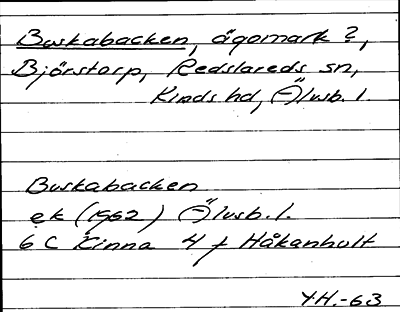 Buskabacken, ägomark?,
Björstorp, Redslareds sn,
Kinds hd, Älvsb. l.
Buskabacken
ek (1962) Älvsb. l.
6 C Kinna 4 f Håkanhult
YH.-63